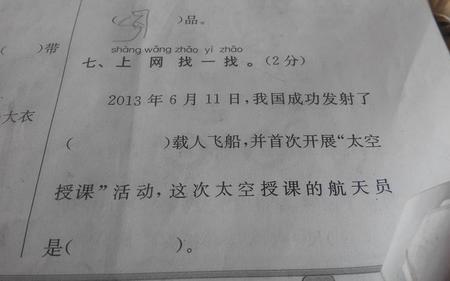 (      )品。
(  )带
shàng wǎng zhǎo yì zhǎo
七、上 网 找 一 找。(2分)
2013年6月11日,我国成功发射了
大衣
(      )载人飞船,并首次开展“太空
授课”活动,这次太空授课的航天员
是(      )。